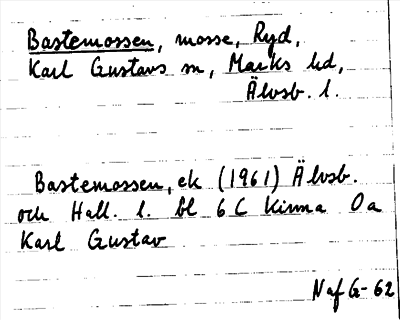 Bastemossen, mosse, Ryd,
Karl Gustavs sn, Marks hd,
Älvsb. l.
Bastemossen, ek (1961) Älvsb.
och Hall. l. bl 6 C Kinna Oa
Karl Gustav
Naf G-62